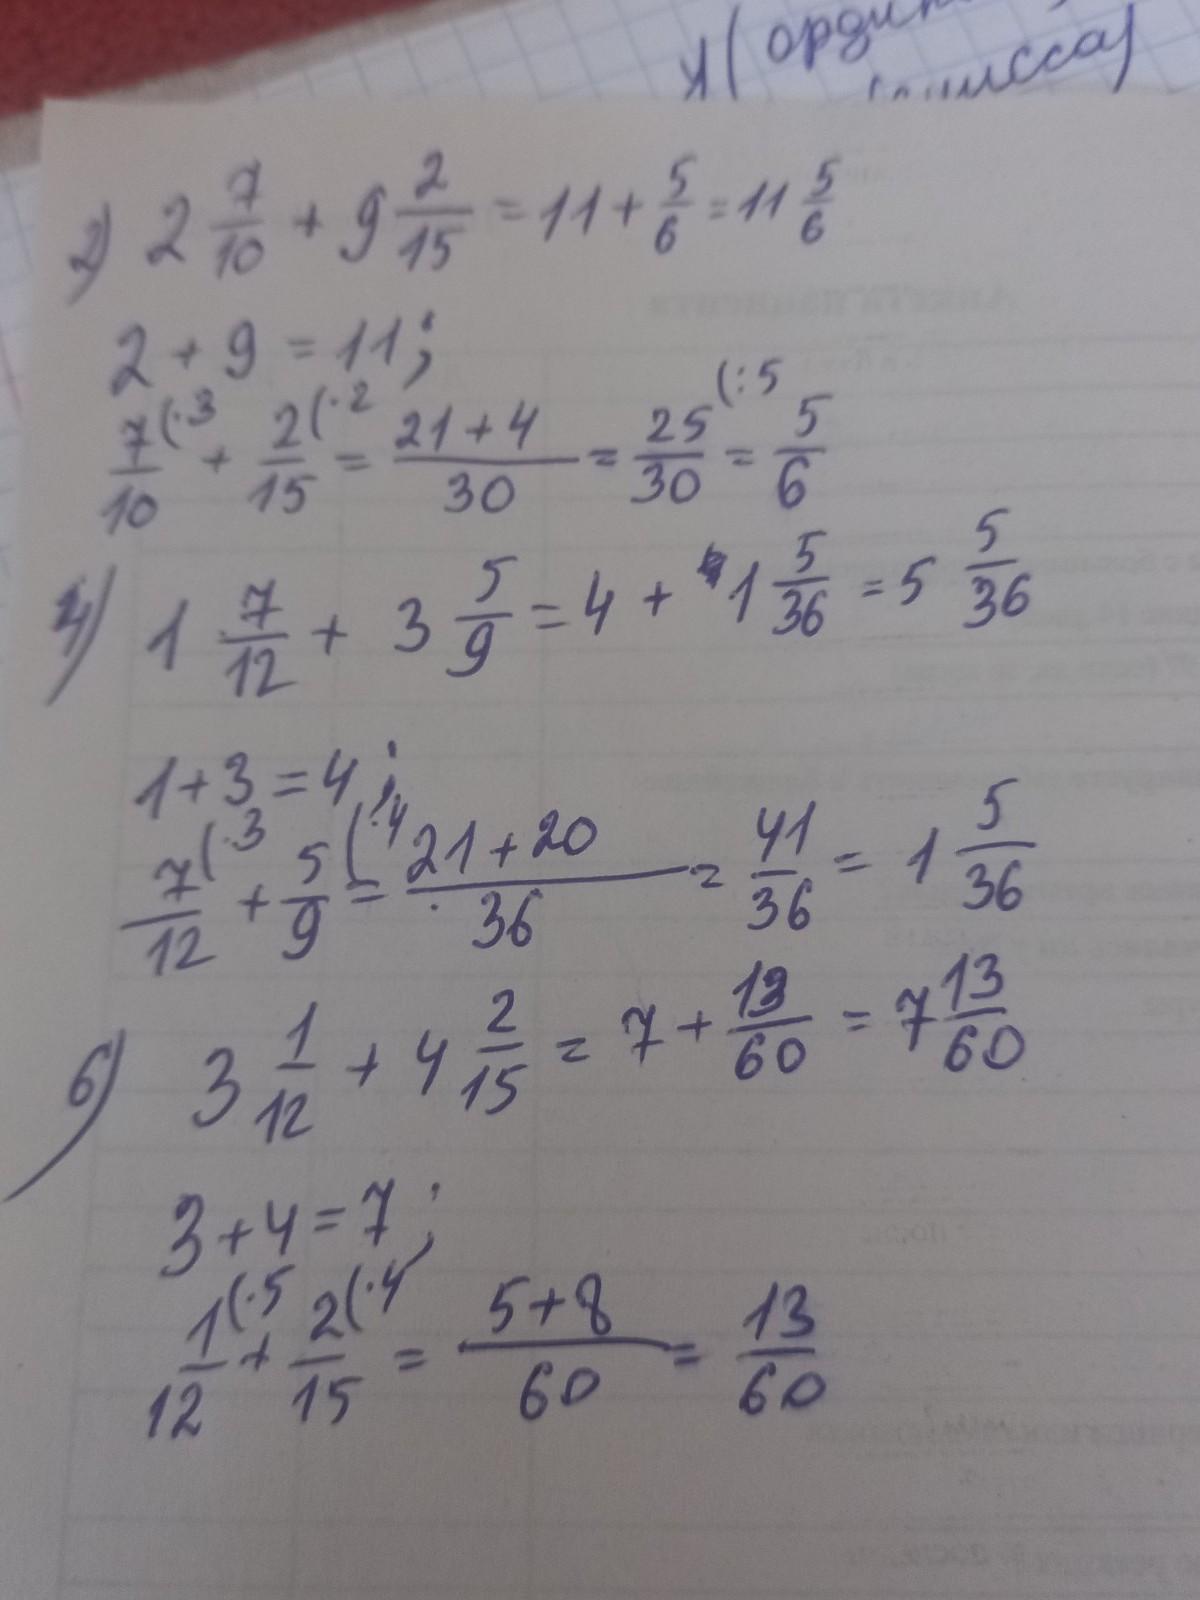 у(ордин
сса)
2) 2 7/10 + 9 2/15 = 11 + 5/6 = 11 5/6
2 + 9 = 11;
7/10 (·3 + 2/15 (·2 = (21 + 4)/30 = 25/30 (:5 = 5/6
4) 1 7/12 + 3 5/9 = 4 + 1 5/36 = 5 5/36
1 + 3 = 4;
7/12 (·3 + 5/9 (·4 = (21 + 20)/36 = 41/36 = 1 5/36
6) 3 1/12 + 4 2/15 = 7 + 13/60 = 7 13/60
3 + 4 = 7;
1/12 (·5 + 2/15 (·4 = (5 + 8)/60 = 13/60